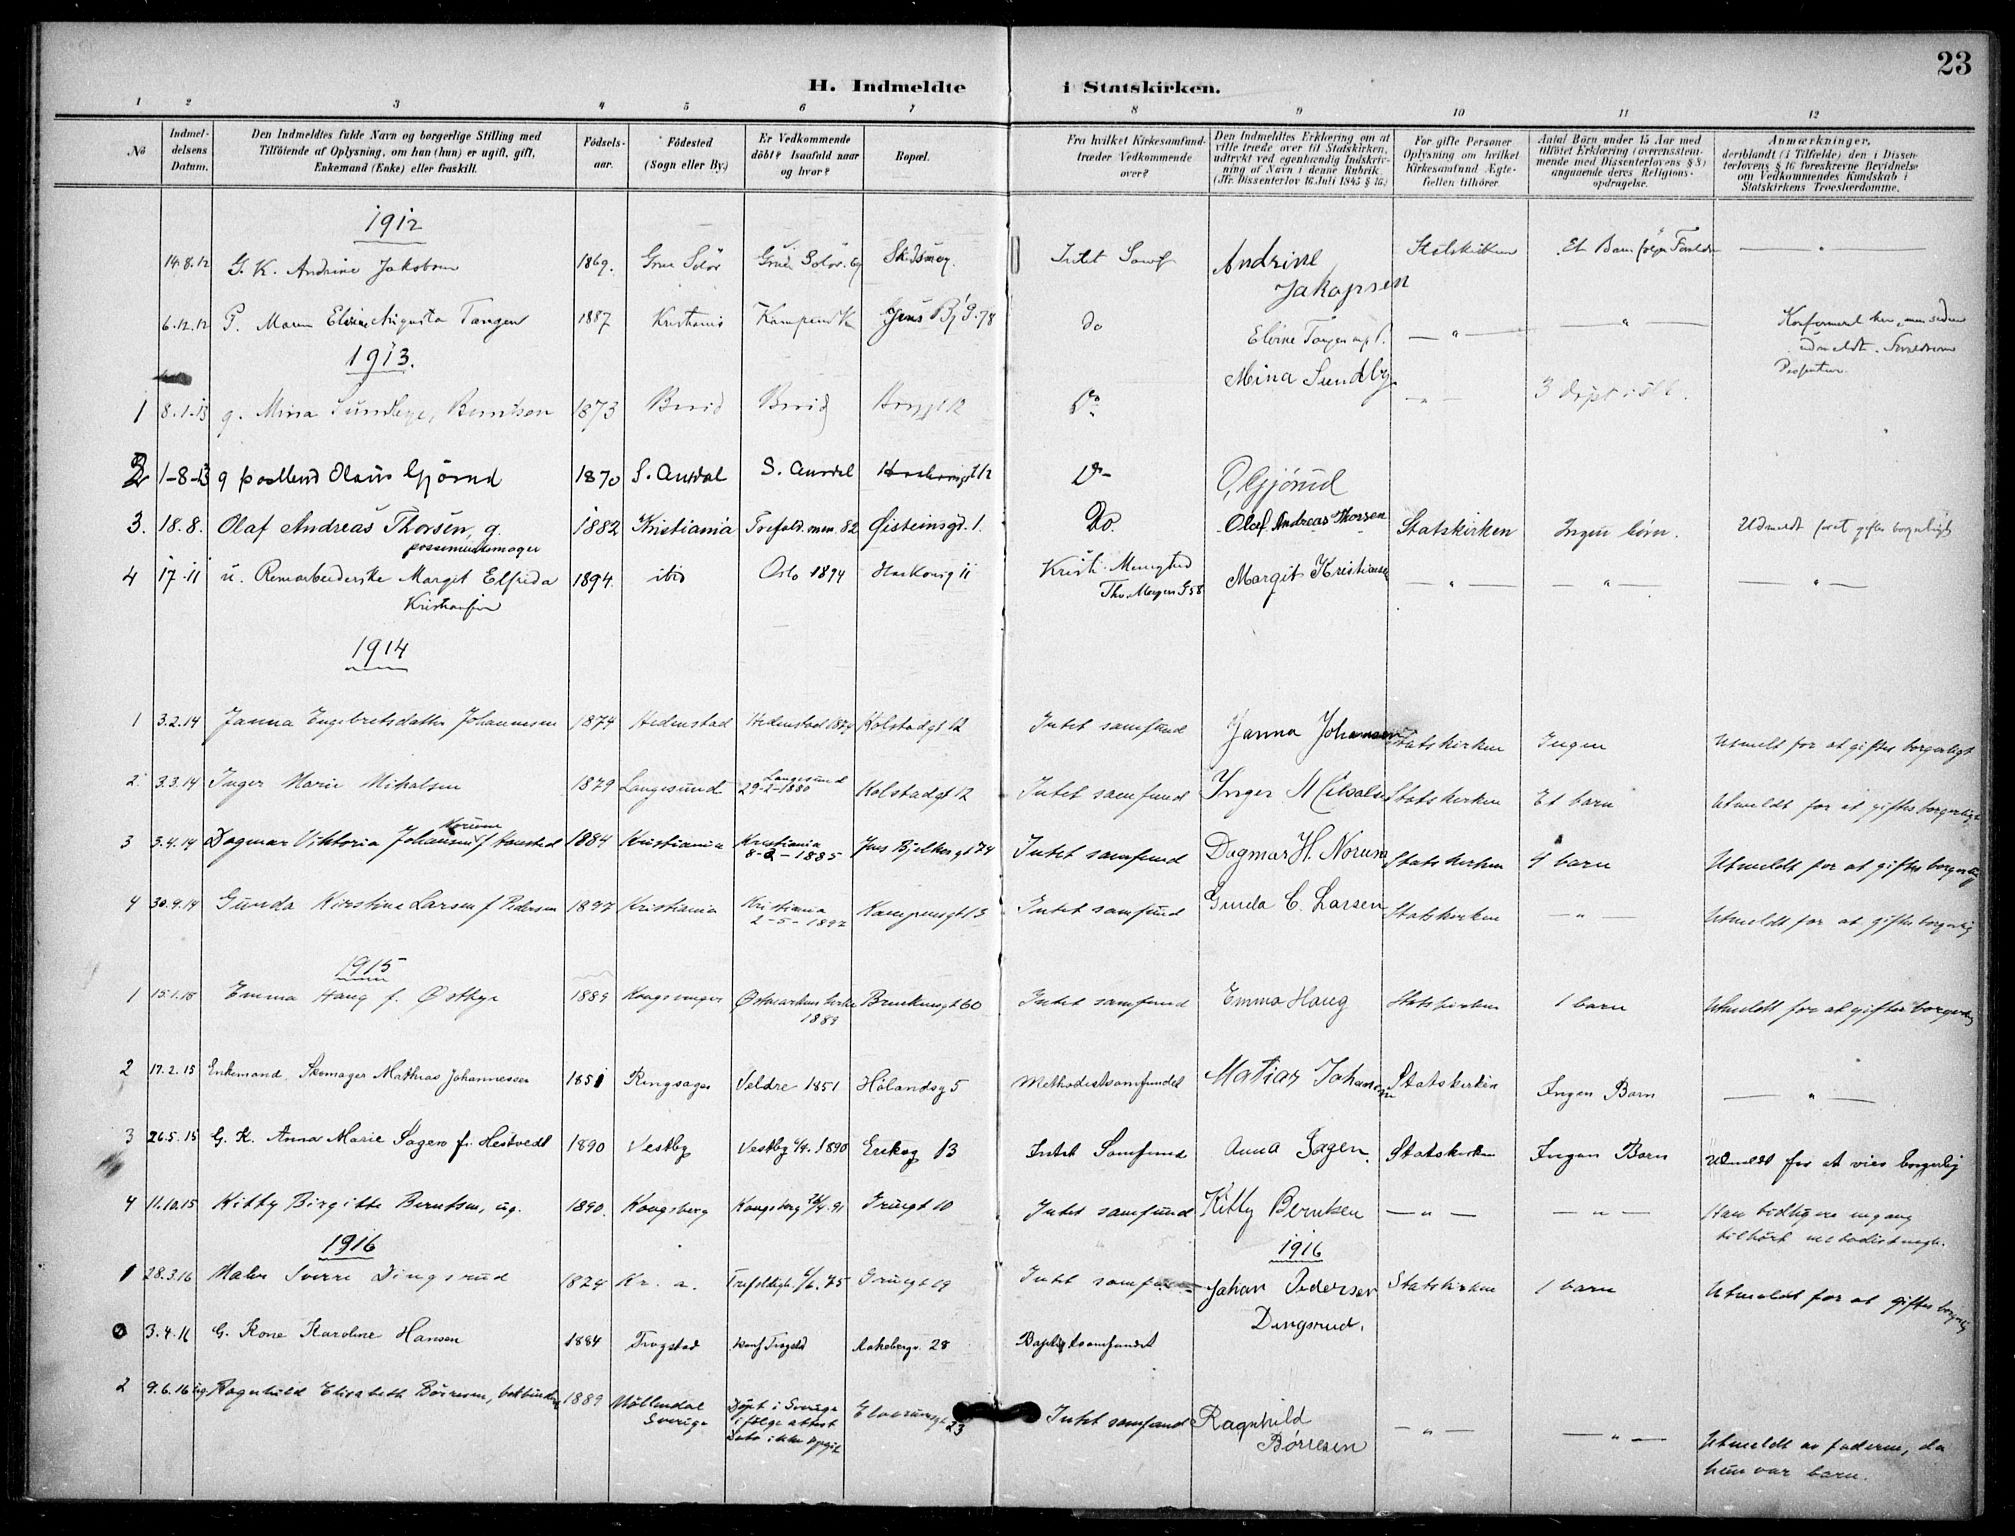 23
H. Indmeldte i Statskirken.
1 2 3 4 5 6 7 8 9 10 11 12
No
Indmel-
delsens
Datum.
Den Indmeldtes fulde Navn og borgerlige Stilling med
Tilföiende af Oplysning, om han (hun) er ugift, gift,
Enkemand (Enke) eller fraskilt.
Födsels-
aar.
Födested
(Sogn eller By.)
Er Vedkommende
döbt? Isaafald naar
og hvor?
Bopæl.
Fra hvilket Kirkesamfund
træder Vedkommende
over?
Den Indmeldtes Erklæring om at
ville træde over til Statskirken,
udtrykt ved egenhændig Indskriv-
ning af Navn i denne Rubrik.
(Jfr. Dissenterlov 16 Juli 1845 § 16.)
For gifte Personer
Oplysning om hvilket
Kirkesamfund Ægte-
fællen tilhörer.
Antal Börn under 15 Aar med
tilföiet Erklæring (overensstem-
mende med Dissenterlovens § 8)
angaaende deres Religions-
opdragelse.
Anmærkninger,
deriblandt (i Tilfælde) den i Dissen-
terlovens § 16 foreskrevne Bevidnelse
om Vedkommendes Kundskab i
Statskirkens Troeslærdomme.
1912
14.8.12 G. K. Andrine Jakobsen 1869. Grue Solör Grue Solör. Intet Samf Andrine Statskirken Et Barn
Jakopsen
6.12.12 P. Maren Elvine Augusta Tangen 1887 Kristiania do Elvine Tangen — " —
udmeldt.
1913.
1 8.1.13 g. Mina Sundbye, Berntsen 1873 Do Mina Sundby — " — 3
2 1-8-13 g Olaus Gjörud 1870 S. Aurdal S. Aurdal Do O. Gjörud
3. 18.8. Olaf Andreas Thorsen, g. 1882 Kristiania Trefold. men. 82 Øisteinsgd. 1. Do. Olaf Andreas Thorsen Statskirken Ingen börn. Udmeldt
possementmager
4 17.11 u. Margit Elfrida 1894. ibid Oslo 1894 11 Margit Kristiansen — " — — " — — " —
Kristiansen
1914
1 3.2.14 Janna Engebretsdatter Johannesen 1874 Hedenstad Hedenstad 1874 Kolstadgt 12 Intet samfund Janna Johansen Statskirken Ingen Utmeldt for at giftes borgerligt
2 3.3.14 Inger Marie Mikalsen 1879 Langesund Langesund
29-2-1880 Kolstadgt 12 Intet samfund Inger Statskirken Et barn Utmeldt for at giftes borgerligt
3 3.4.14 Dagmar Viktoria Norum 1884 Kristiania Kristiania
8-2-1885 Jens Bjelkesgt 74 Intet samfund Dagmar H. Norum Statskirken 4 barn Utmeldt for at giftes borgerlig
4 30.9.14 Gunda Kirstine Larsen f Pedersen 1897 Kristiania Kristiania
2-5-1897 Kampensgt 13 Intet samfund Gunda C. Larsen Statskirken — " — Utmeldt for at giftes borgerlig
1915
1 15.1.15 Emma Haug f. Østbye 1889 Kongsvinger Østmarkens kirke
1889 60 Intet samfund Emma Haug Statskirken 1 barn Utmeldt for at giftes borgerlig
2 17.2.15 Enkemand. Skomager Mathias Johannessen 1851 Ringsager Veldre 1851 Hölandsg 5 Methodistsamfundet Matias Johansen Statskirken Ingen Barn — " —
3 26.5.15 G. K. Anna Marie Sagen f. Hestvedt 1890 Vestby Vestby 1890 Eriksg 13 Intet Samfund Anna Sagen. Statskirken Ingen Barn Utmeldt for at vies borgerlig
4 11.10.15 Kitty Birgitte Berntsen, ug. 1890. Kongsberg Kongsberg 91 Grüngt 10 Intet samfund Kitty Berntsen — " — — " — Har tidligere engang
tilhört metodistmegh.
1916 1916
1 28.3.16 Sverre Dingsrud Kr. a. Trefoldigh. 75 Grüngt 19 Intet samfund Johan Pedersen Statskirken 1 barn Utmeldt for at giftes borgerlig
Dingsrud.
3.4.16 G. Kone Karoline Hansen 1884 Trøgstad konf Trøgstd Aakebergv. 28 Baptistsamfundet
2 9.6.16 ug. Ragnhild Elisabeth Börresen, 1889 Möllendal
Sverige Döpt i Sverige
ifölge attest
Dato ikke opgit Elverumsgt 23 Intet samfund Ragnhild
Börresen — " — — " — Utmeldt av faderen, da
hun var barn.